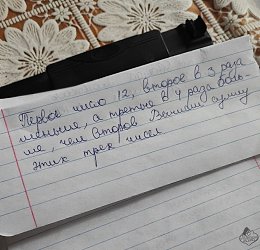 Первое число 12, второе в 3 раза
меньше, а третье в 4 раза боль-
ше, чем второе. Вычисли сумму
этих трех чисел.